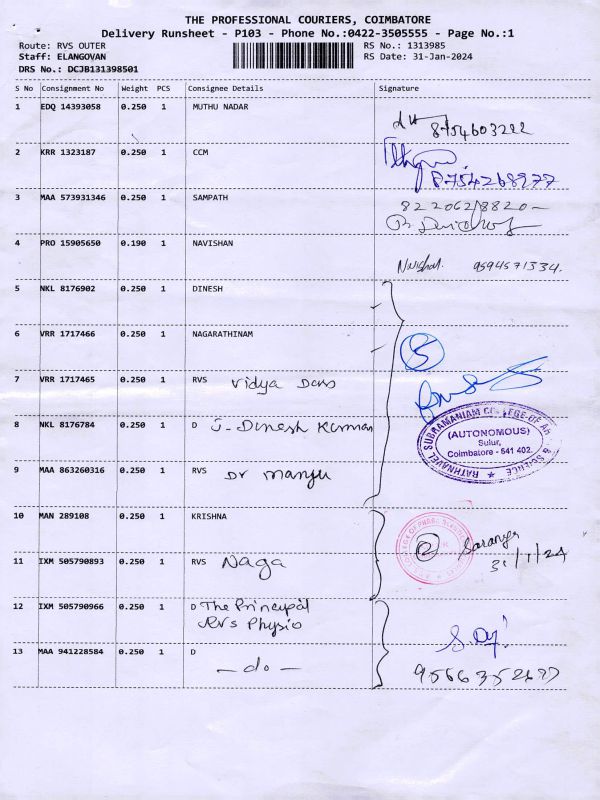 THE PROFESSIONAL COURIERS, COIMBATORE
Delivery Runsheet - P103 - Phone No.:0422-3505555 - Page No.:1
Route: RVS OUTER RS No.: 1313985
Staff: ELANGOVAN RS Date: 31-Jan-2024
DRS No.: DCJB131398501
S No Consignment No Weight PCS Consignee Details Signature
1 EDQ 14393058 0.250 1 MUTHU NADAR
8754603222
2 KRR 1323187 0.250 1 CCM
8754268977
3 MAA 573931346 0.250 1 SAMPATH 8220628820-
4 PRO 15905650 0.190 1 NAVISHAN
Navishal. 9594571334.
5 NKL 8176902 0.250 1 DINESH
6 VRR 1717466 0.250 1 NAGARATHINAM
5
7 VRR 1717465 0.250 1 RVS Vidya Dass
8 NKL 8176784 0.250 1 D J-Dinesh Kumman
RATHNAVEL SUBRAMANIAM COLLEGE OF ARTS & SCIENCE
(AUTONOMOUS)
Sulur,
Coimbatore - 641 402.
9 MAA 863260316 0.250 1 RVS Dr manju
10 MAN 289108 0.250 1 KRISHNA
2 Saranya
31/1/24
11 IXM 505790893 0.250 1 RVS Naga
12 IXM 505790966 0.250 1 D The Principal
RVS Physio
13 MAA 941228584 0.250 1 D
-do-